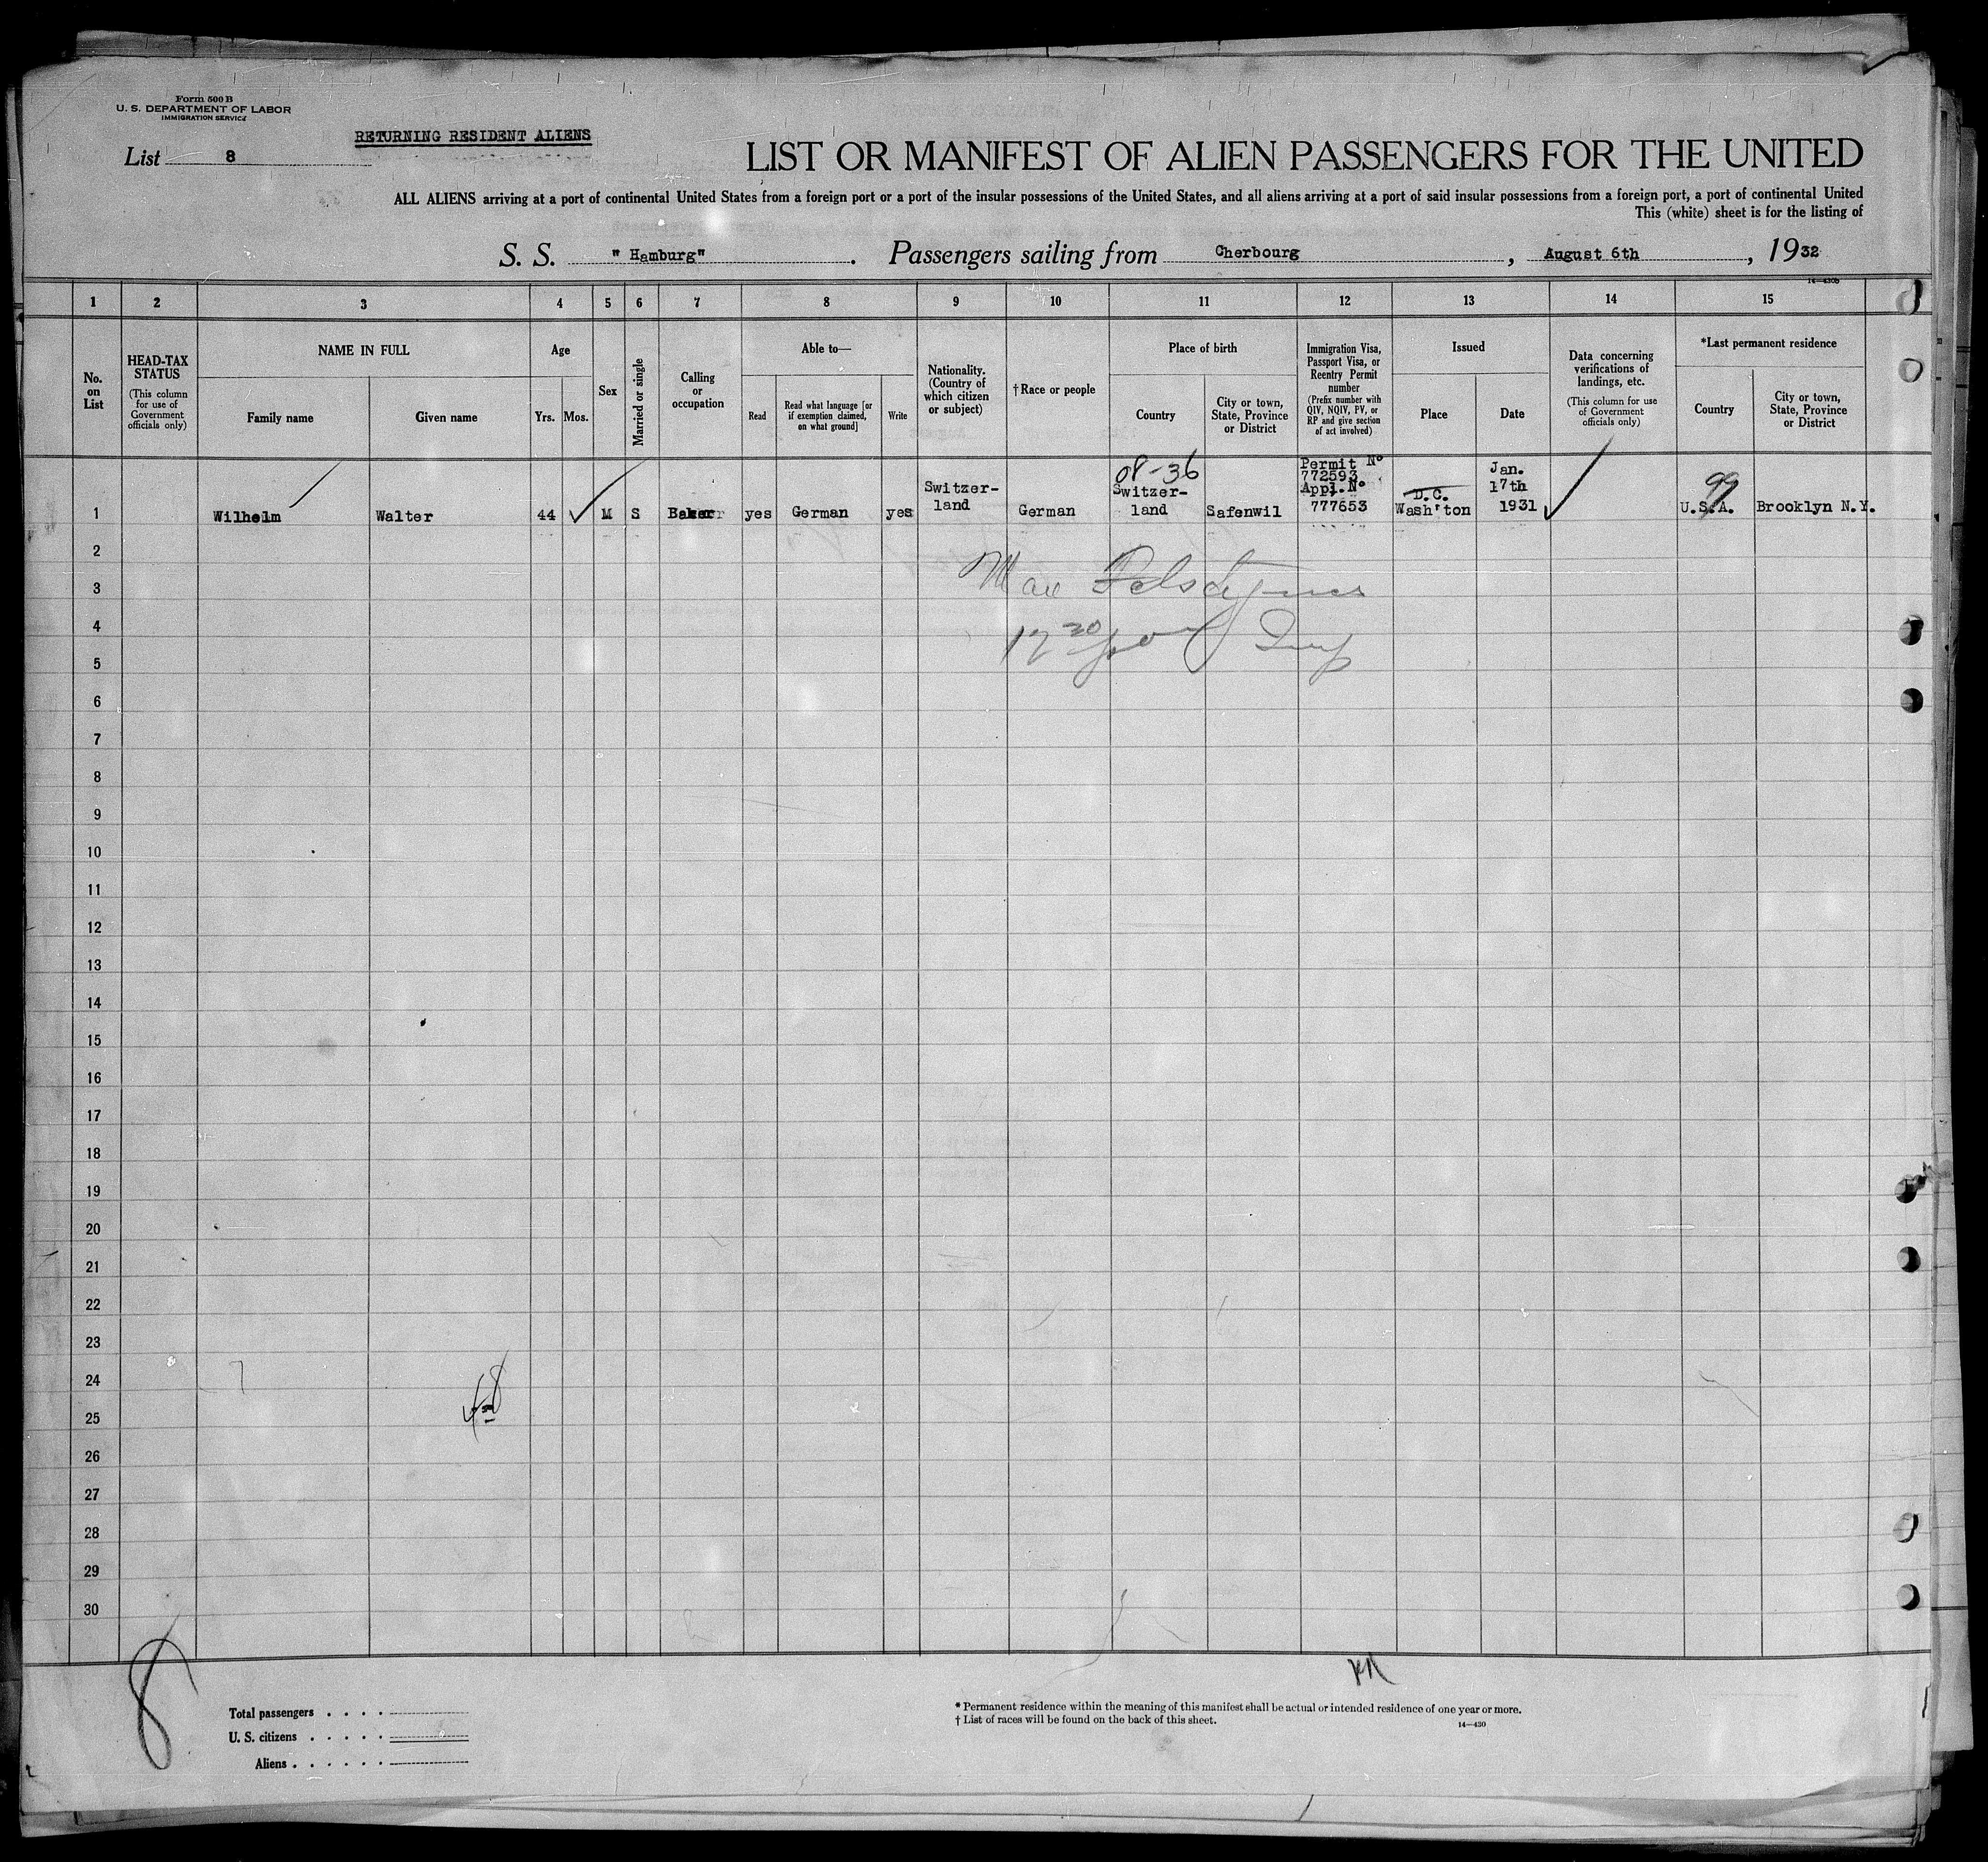 Form 500 B
U. S. DEPARTMENT OF LABOR
IMMIGRATION SERVICE
RETURNING RESIDENT ALIENS
List 8
LIST OR MANIFEST OF ALIEN PASSENGERS FOR THE UNITED
ALL ALIENS arriving at a port of continental United States from a foreign port or a port of the insular possessions of the United States, and all aliens arriving at a port of said insular possessions from a foreign port, a port of continental United
This (white) sheet is for the listing of
S. S. "Hamburg". Passengers sailing from Cherbourg, August 6th, 1932
14—430b
1 2 3 4 5 6 7 8 9 10 11 12 13 14 15
No. on List
HEAD-TAX STATUS
(This column for use of Government officials only)
NAME IN FULL
Family name
Given name
Age
Yrs.
Mos.
Sex
Married or single
Calling or occupation
Able to—
Read
Read what language [or if exemption claimed, on what ground]
Write
Nationality. (Country of which citizen or subject)
†Race or people
Place of birth
Country
City or town, State, Province or District
Immigration Visa, Passport Visa, or Reentry Permit number
(Prefix number with QIV, NQIV, PV, or RP and give section of act involved)
Issued
Place
Date
Data concerning verifications of landings, etc.
(This column for use of Government officials only)
*Last permanent residence
Country
City or town, State, Province or District
08-36
1 Wilhelm Walter 44 M S Baker yes German yes Switzer-land German Switzer-land Safenwil Permit No 772593 Appl.No 777653 D.C. Wash'ton Jan. 17th 1931 99 U.S.A. Brooklyn N.Y.
2
3
4
5
6
7
8
9
10
11
12
13
14
15
16
17
18
19
20
21
22
23
24
25
26
27
28
29
30
8
Total passengers . . . .
U. S. citizens . . . . .
Aliens . . . . . .
* Permanent residence within the meaning of this manifest shall be actual or intended residence of one year or more.
† List of races will be found on the back of this sheet.
14—430